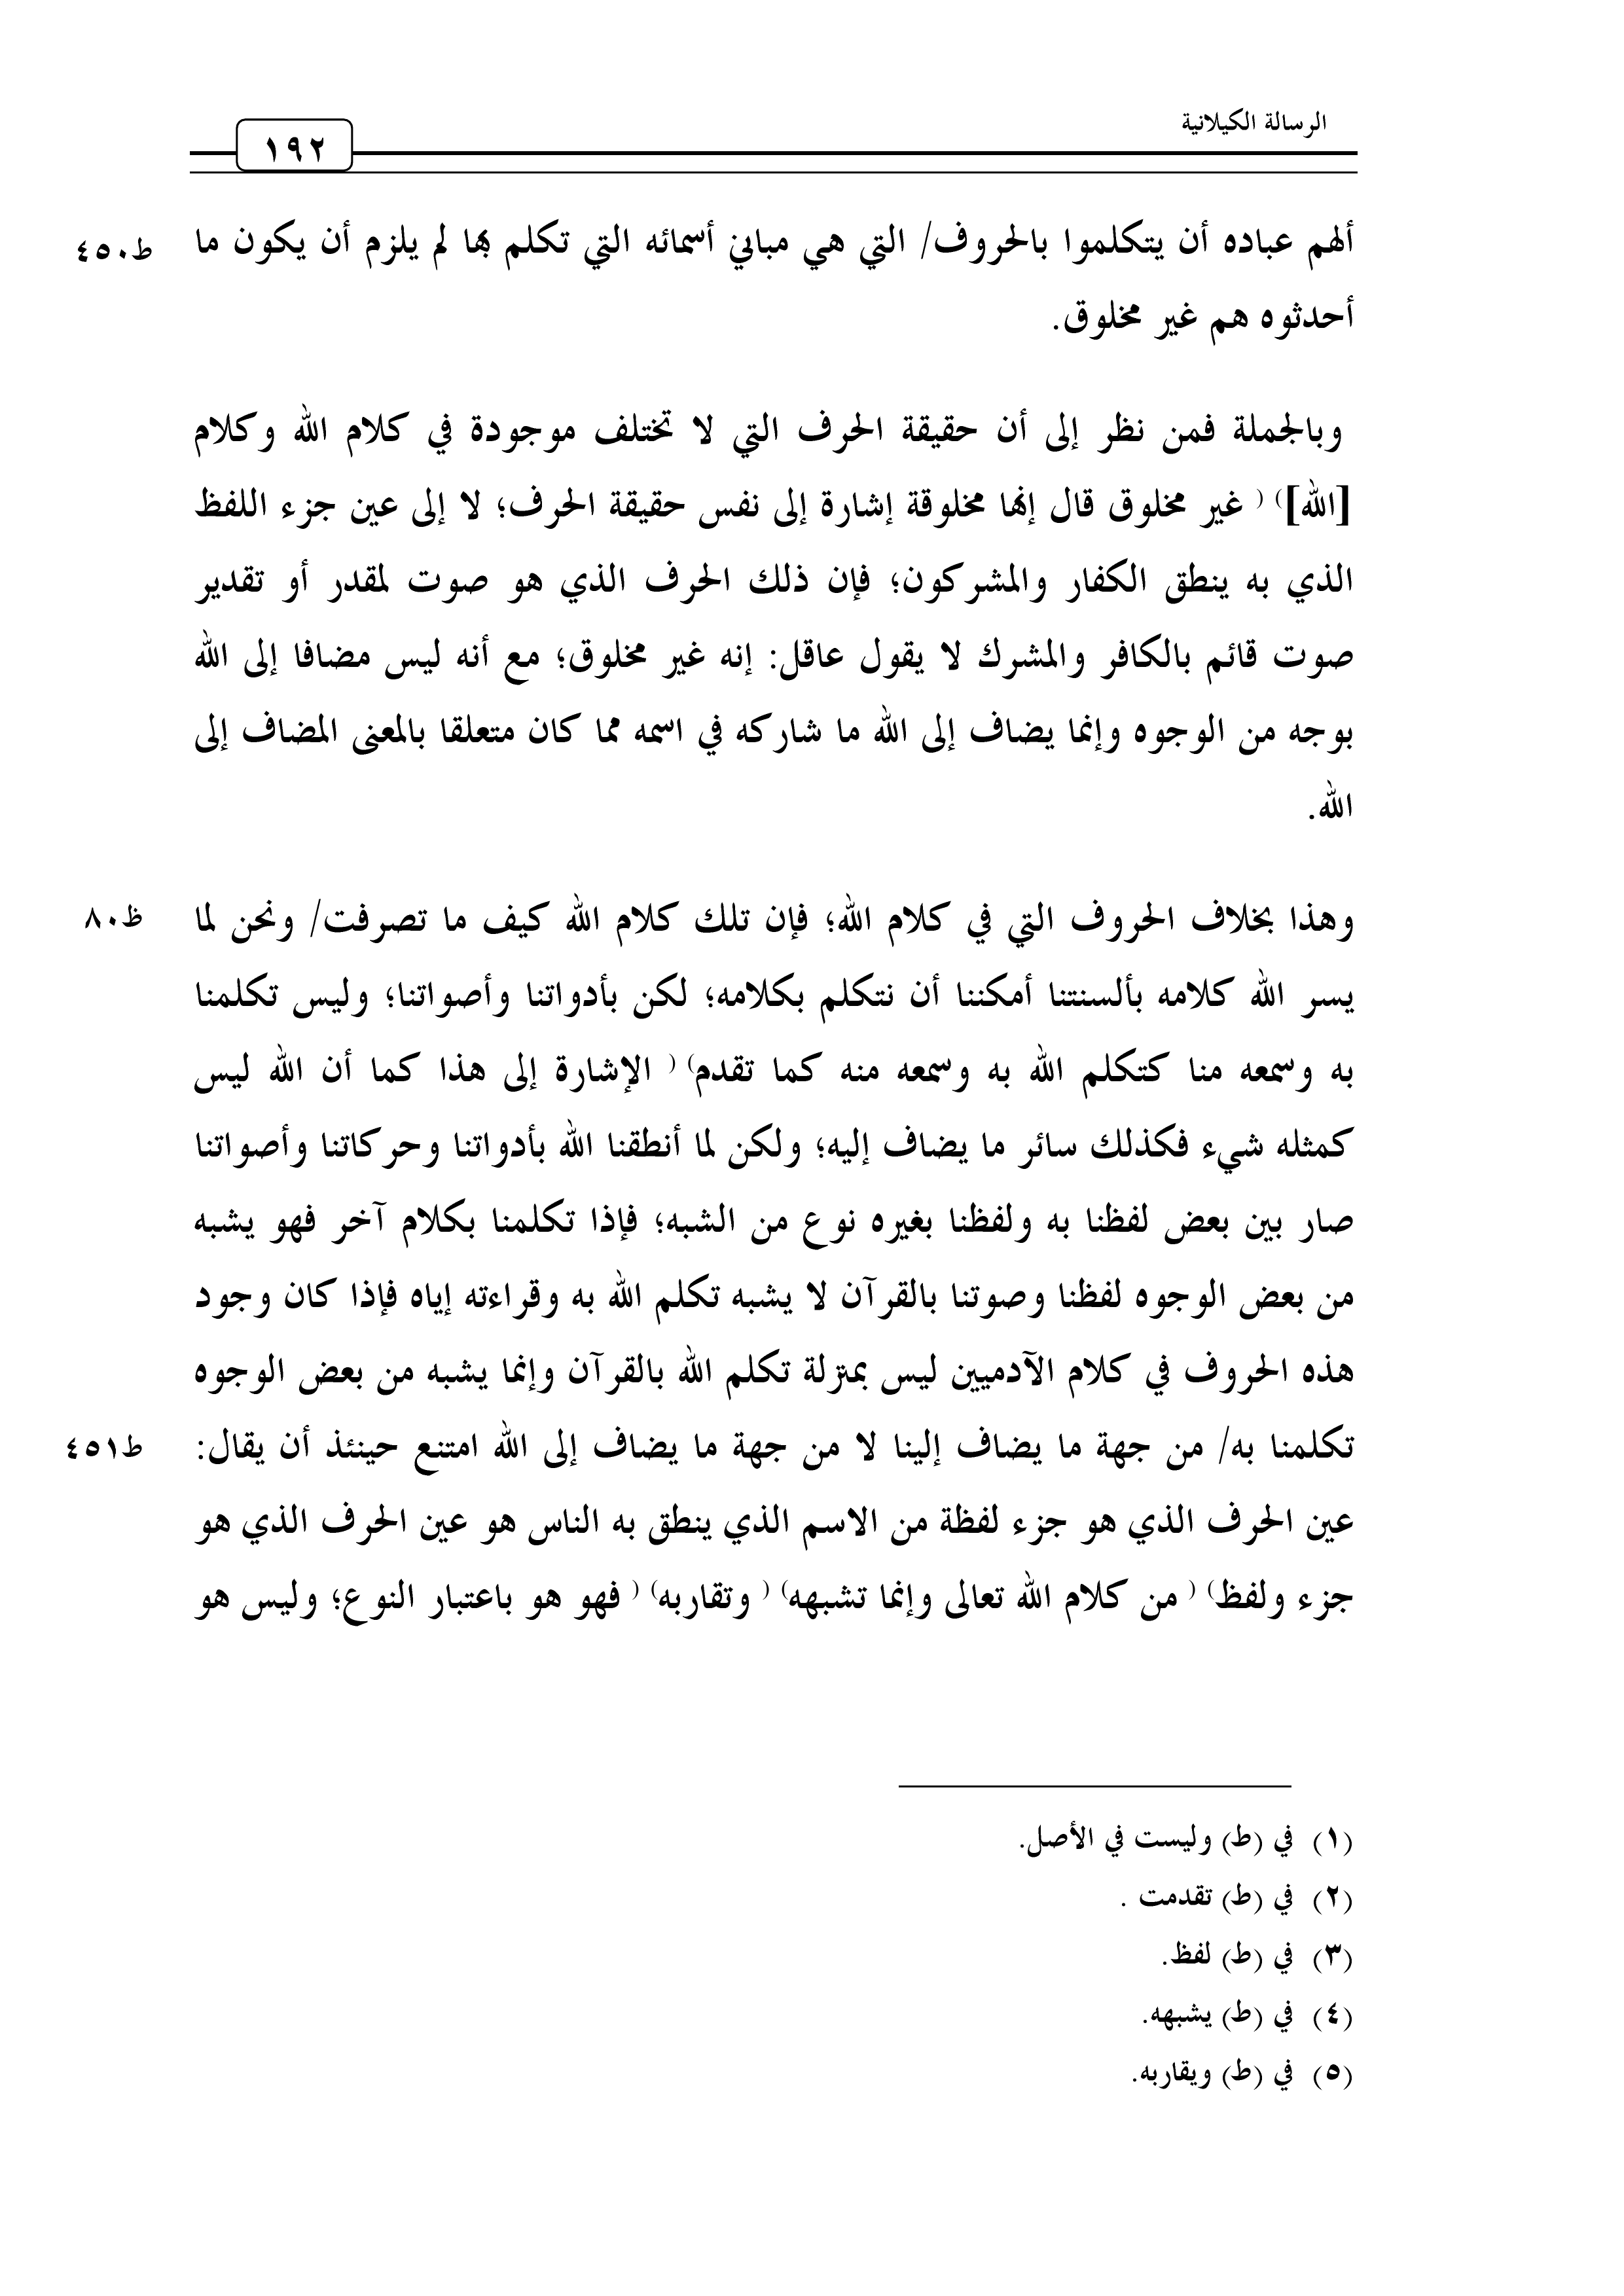 الرسالة الكيلانية
١٩٢
ألهم عباده أن يتكلموا بالحروف/ التي هي مباني أسمائه التي تكلم بها لم يلزم أن يكون ما
ط٤٥٠
أحدثوه هم غير مخلوق.
وبالجملة فمن نظر إلى أن حقيقة الحرف التي لا تختلف موجودة في كلام الله وكلام
[الله]) ( غير مخلوق قال إنها مخلوقة إشارة إلى نفس حقيقة الحرف؛ لا إلى عين جزء اللفظ
الذي به ينطق الكفار والمشركون؛ فإن ذلك الحرف الذي هو صوت لمقدر أو تقدير
صوت قائم بالكافر والمشرك لا يقول عاقل: إنه غير مخلوق؛ مع أنه ليس مضافا إلى الله
بوجه من الوجوه وإنما يضاف إلى الله ما شاركه في اسمه مما كان متعلقا بالمعنى المضاف إلى
الله.
وهذا بخلاف الحروف التي في كلام الله؛ فإن تلك كلام الله كيف ما تصرفت/ ونحن لما
ظ٨٠
يسر الله كلامه بألسنتنا أمكننا أن نتكلم بكلامه؛ لكن بأدواتنا وأصواتنا؛ وليس تكلمنا
به وسمعه منا كتكلم الله به وسمعه منه كما تقدم) ( الإشارة إلى هذا كما أن الله ليس
كمثله شيء فكذلك سائر ما يضاف إليه؛ ولكن لما أنطقنا الله بأدواتنا وحركاتنا وأصواتنا
صار بين بعض لفظنا به ولفظنا بغيره نوع من الشبه؛ فإذا تكلمنا بكلام آخر فهو يشبه
من بعض الوجوه لفظنا وصوتنا بالقرآن لا يشبه تكلم الله به وقراءته إياه فإذا كان وجود
هذه الحروف في كلام الآدميين ليس بمنزلة تكلم الله بالقرآن وإنما يشبه من بعض الوجوه
تكلمنا به/ من جهة ما يضاف إلينا لا من جهة ما يضاف إلى الله امتنع حينئذ أن يقال:
ط٤٥١
عين الحرف الذي هو جزء لفظة من الاسم الذي ينطق به الناس هو عين الحرف الذي هو
جزء ولفظ) ( من كلام الله تعالى وإنما تشبهه) ( وتقاربه) ( فهو هو باعتبار النوع؛ وليس هو
(١) في (ط) وليست في الأصل.
(٢) في (ط) تقدمت .
(٣) في (ط) لفظ.
(٤) في (ط) يشبهه.
(٥) في (ط) ويقاربه.